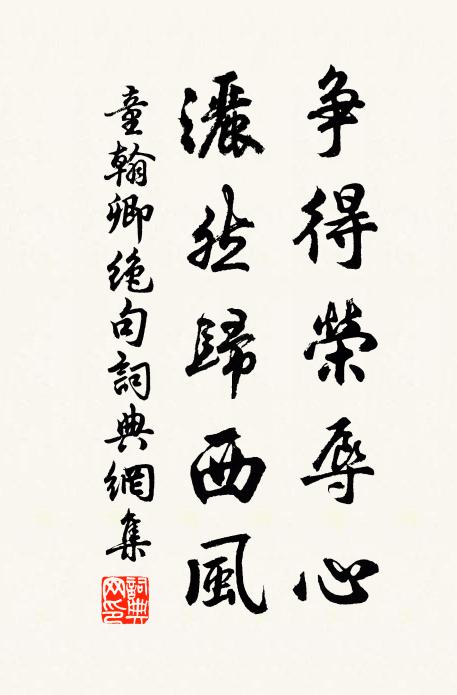 争得榮辱心
灑然歸西風
童翰卿絶句詞典網集
詞典網印